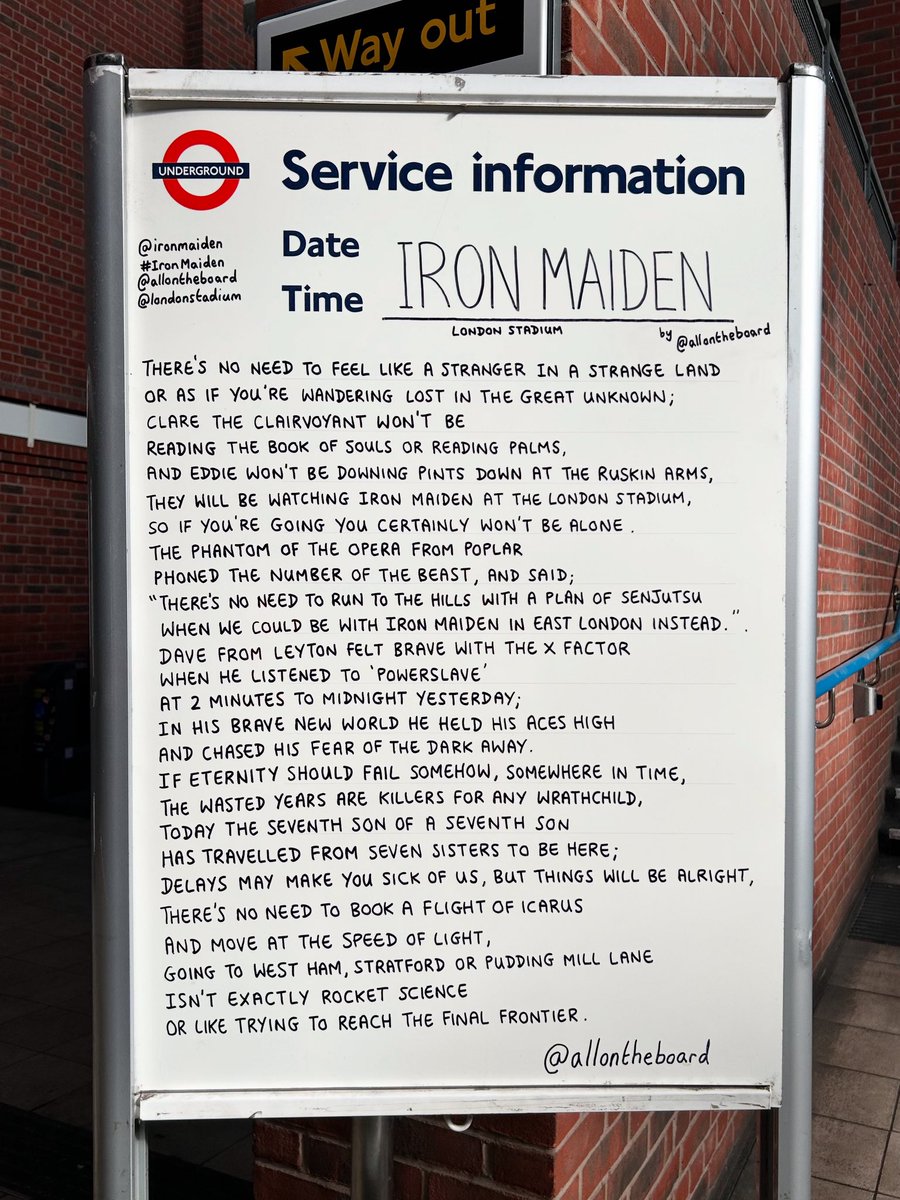 Way out
UNDERGROUND
Service information
@ironmaiden
#IronMaiden
@allontheboard
@londonstadium
Date
Time
IRON MAIDEN
LONDON STADIUM
by @allontheboard
THERE'S NO NEED TO FEEL LIKE A STRANGER IN A STRANGE LAND
OR AS IF YOU'RE WANDERING LOST IN THE GREAT UNKNOWN;
CLARE THE CLAIRVOYANT WON'T BE
READING THE BOOK OF SOULS OR READING PALMS,
AND EDDIE WON'T BE DOWNING PINTS DOWN AT THE RUSKIN ARMS,
THEY WILL BE WATCHING IRON MAIDEN AT THE LONDON STADIUM,
SO IF YOU'RE GOING YOU CERTAINLY WON'T BE ALONE.
THE PHANTOM OF THE OPERA FROM POPLAR
PHONED THE NUMBER OF THE BEAST, AND SAID;
"THERE'S NO NEED TO RUN TO THE HILLS WITH A PLAN OF SENJUTSU
WHEN WE COULD BE WITH IRON MAIDEN IN EAST LONDON INSTEAD.".
DAVE FROM LEYTON FELT BRAVE WITH THE X FACTOR
WHEN HE LISTENED TO 'POWERSLAVE'
AT 2 MINUTES TO MIDNIGHT YESTERDAY;
IN HIS BRAVE NEW WORLD HE HELD HIS ACES HIGH
AND CHASED HIS FEAR OF THE DARK AWAY.
IF ETERNITY SHOULD FAIL SOMEHOW, SOMEWHERE IN TIME,
THE WASTED YEARS ARE KILLERS FOR ANY WRATHCHILD,
TODAY THE SEVENTH SON OF A SEVENTH SON
HAS TRAVELLED FROM SEVEN SISTERS TO BE HERE;
DELAYS MAY MAKE YOU SICK OF US, BUT THINGS WILL BE ALRIGHT,
THERE'S NO NEED TO BOOK A FLIGHT OF ICARUS
AND MOVE AT THE SPEED OF LIGHT,
GOING TO WEST HAM, STRATFORD OR PUDDING MILL LANE
ISN'T EXACTLY ROCKET SCIENCE
OR LIKE TRYING TO REACH THE FINAL FRONTIER.
@allontheboard